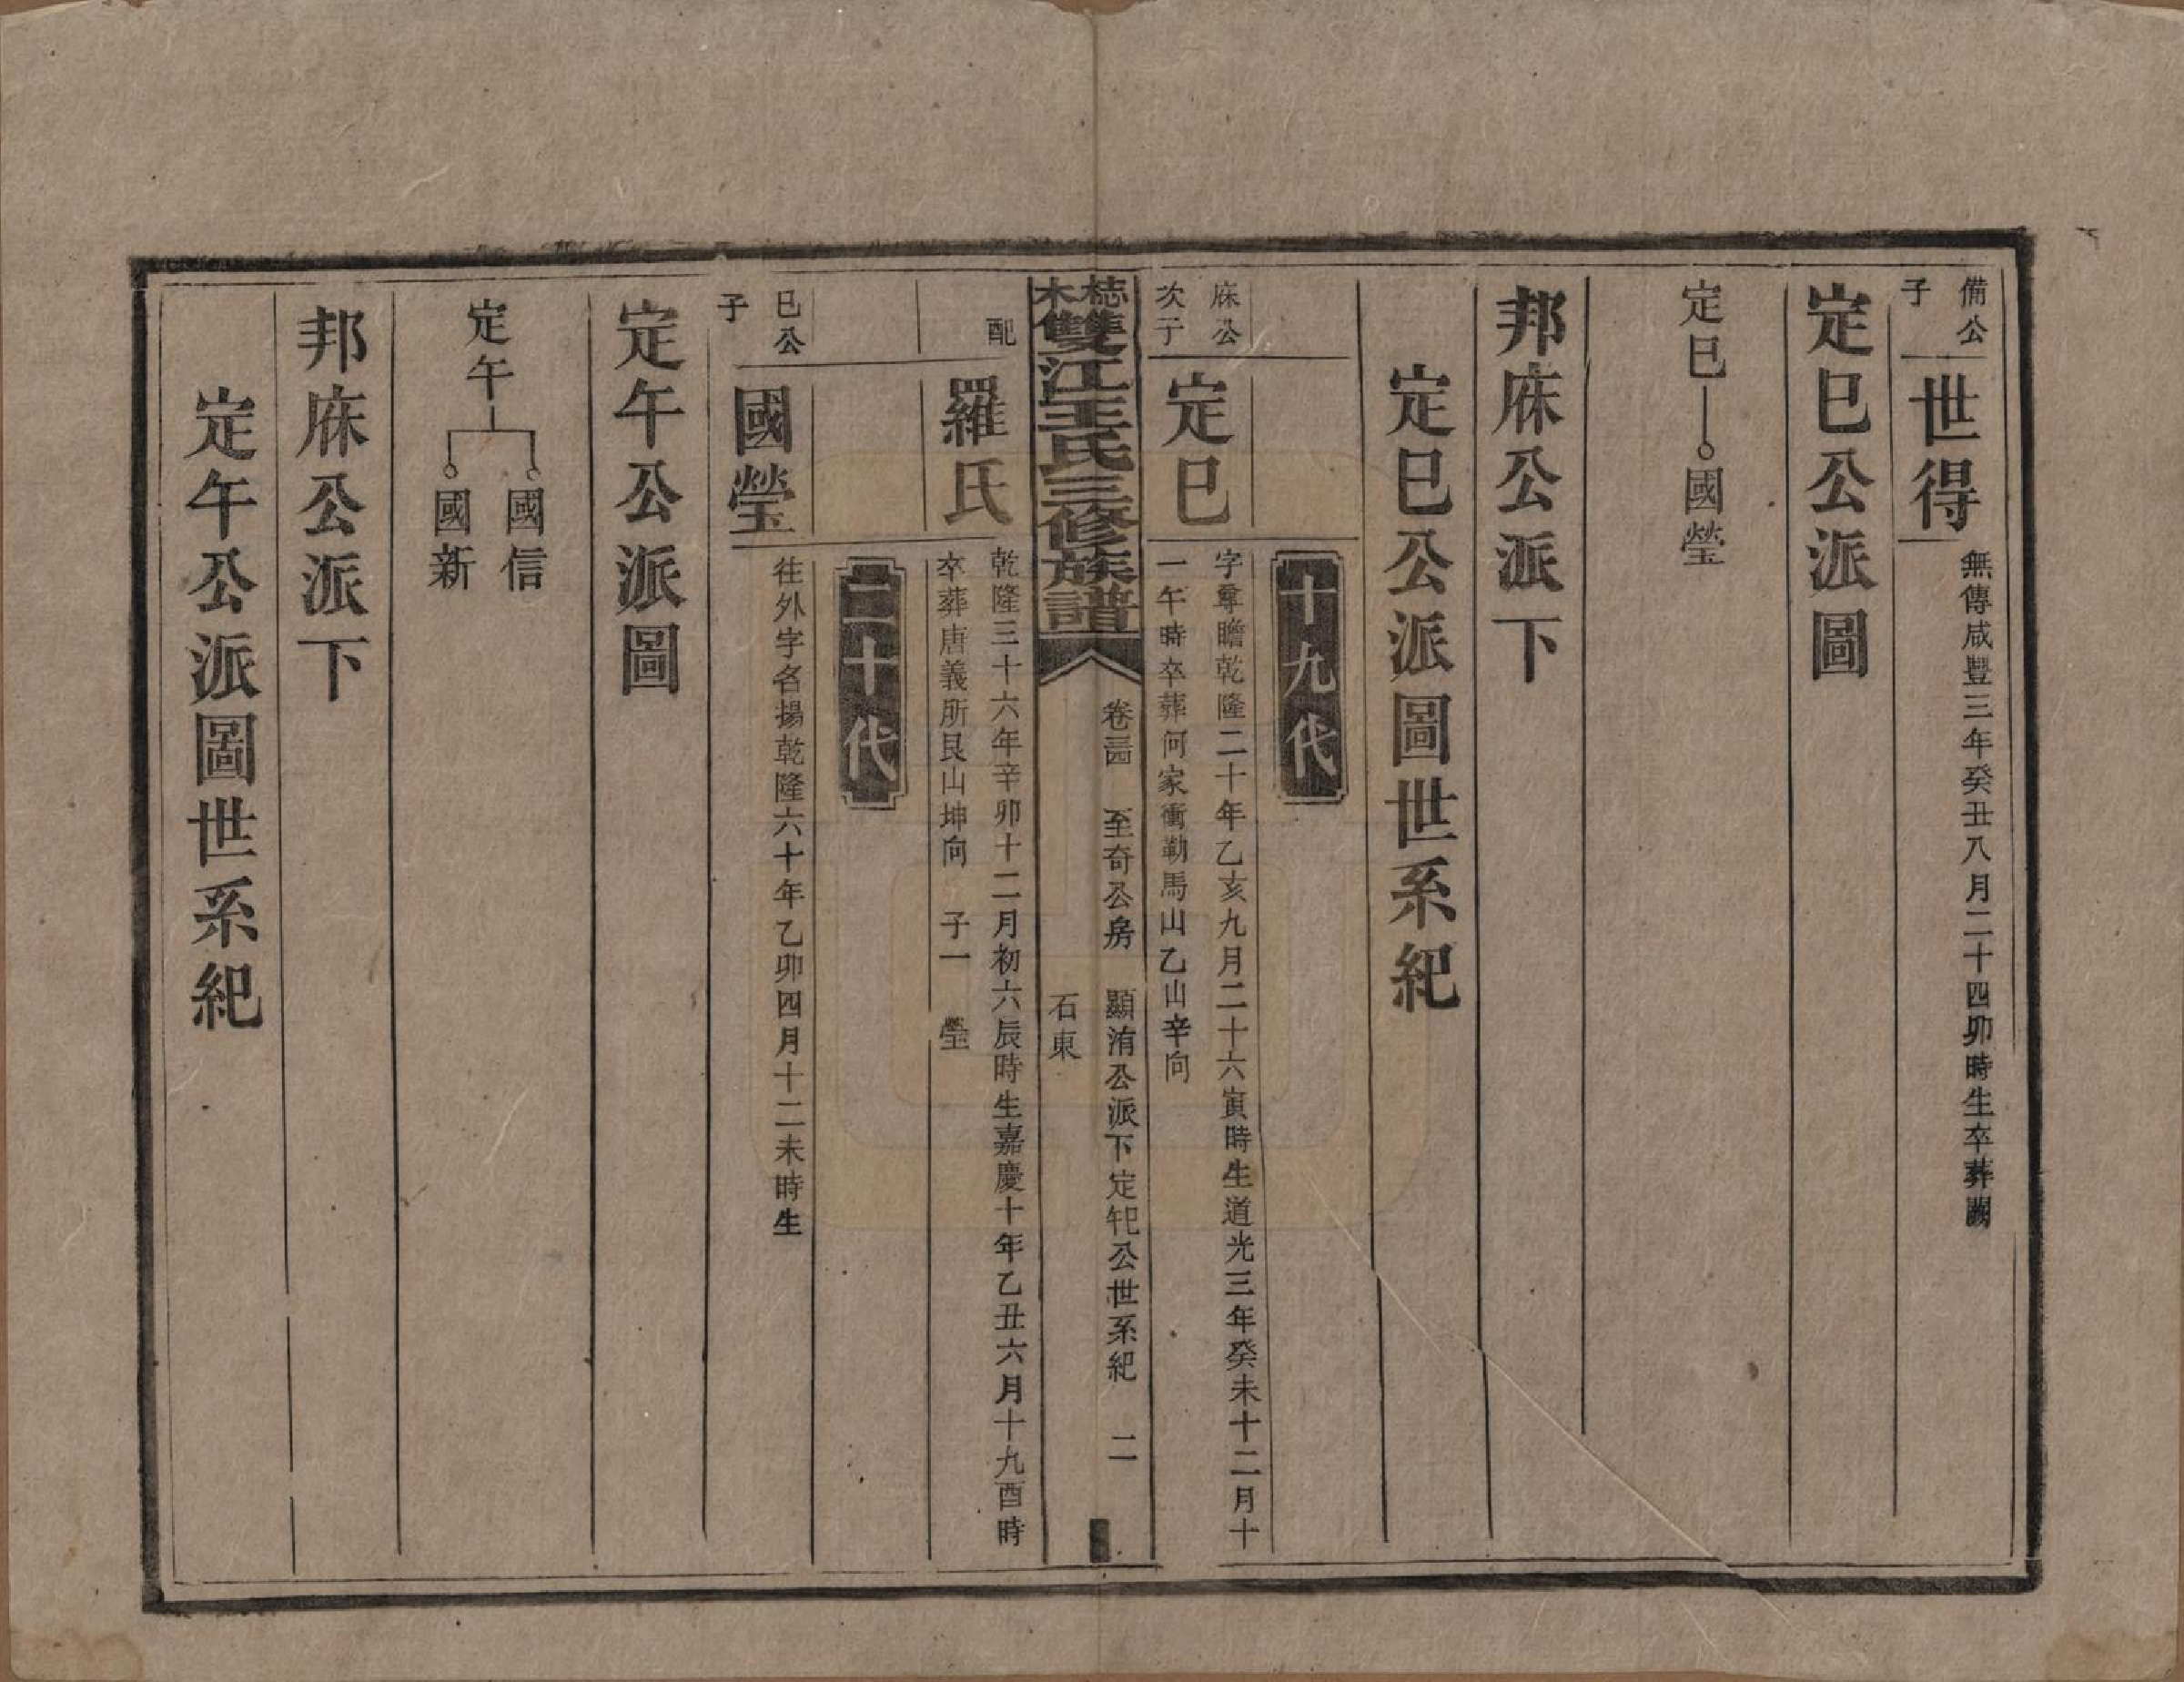 備公
子
世得
無傳咸豐三年癸丑八月二十四卯時生卒葬闕
定巳公派圖
定巳—國瑩
邦庥公派下
定巳公派圖世系紀
十九代
庥公
次子
定巳
字尊瞻乾隆二十年乙亥九月二十六寅時生道光三年癸未十二月十
一午時卒葬何家衝勒馬山乙山辛向
雙江王氏三修族譜
卷三十四 至奇公房 顯洧公派下定公世系紀 二
石東
配
羅氏
乾隆三十六年辛卯十二月初六辰時生嘉慶十年乙丑六月十九酉時
卒葬唐義所艮山坤向 子一 瑩
二十代
巳公
子
國瑩
往外字名揚乾隆六十年乙卯四月十二未時生
定午公派圖
定午
國信
國新
邦庥公派下
定午公派圖世系紀